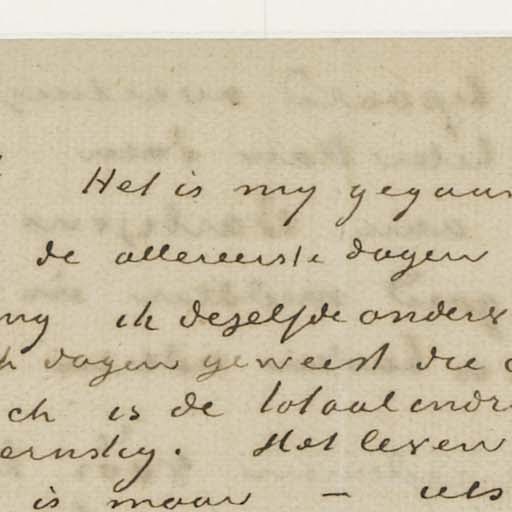 Het is my gegaan
de allereerste dagen
my ik dezelfde anders
dagen geweest die
ch is de totaal indr
ernstig. Het leven
is maar – iets